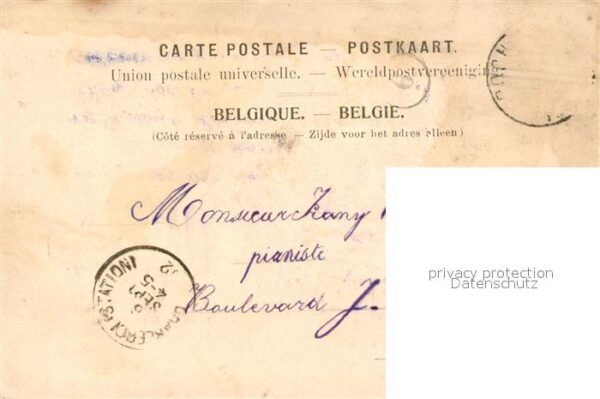 CARTE POSTALE — POSTKAART.
Union postale universelle. — Wereldpostvereeniging
BELGIQUE. — BELGIE.
(Côté réservé à l'adresse — Zijde voor het adres alleen)
Monsieur
pianiste
Boulevard J.
CHARLEROY (STATION)
SEPT
privacy protection
Datenschutz